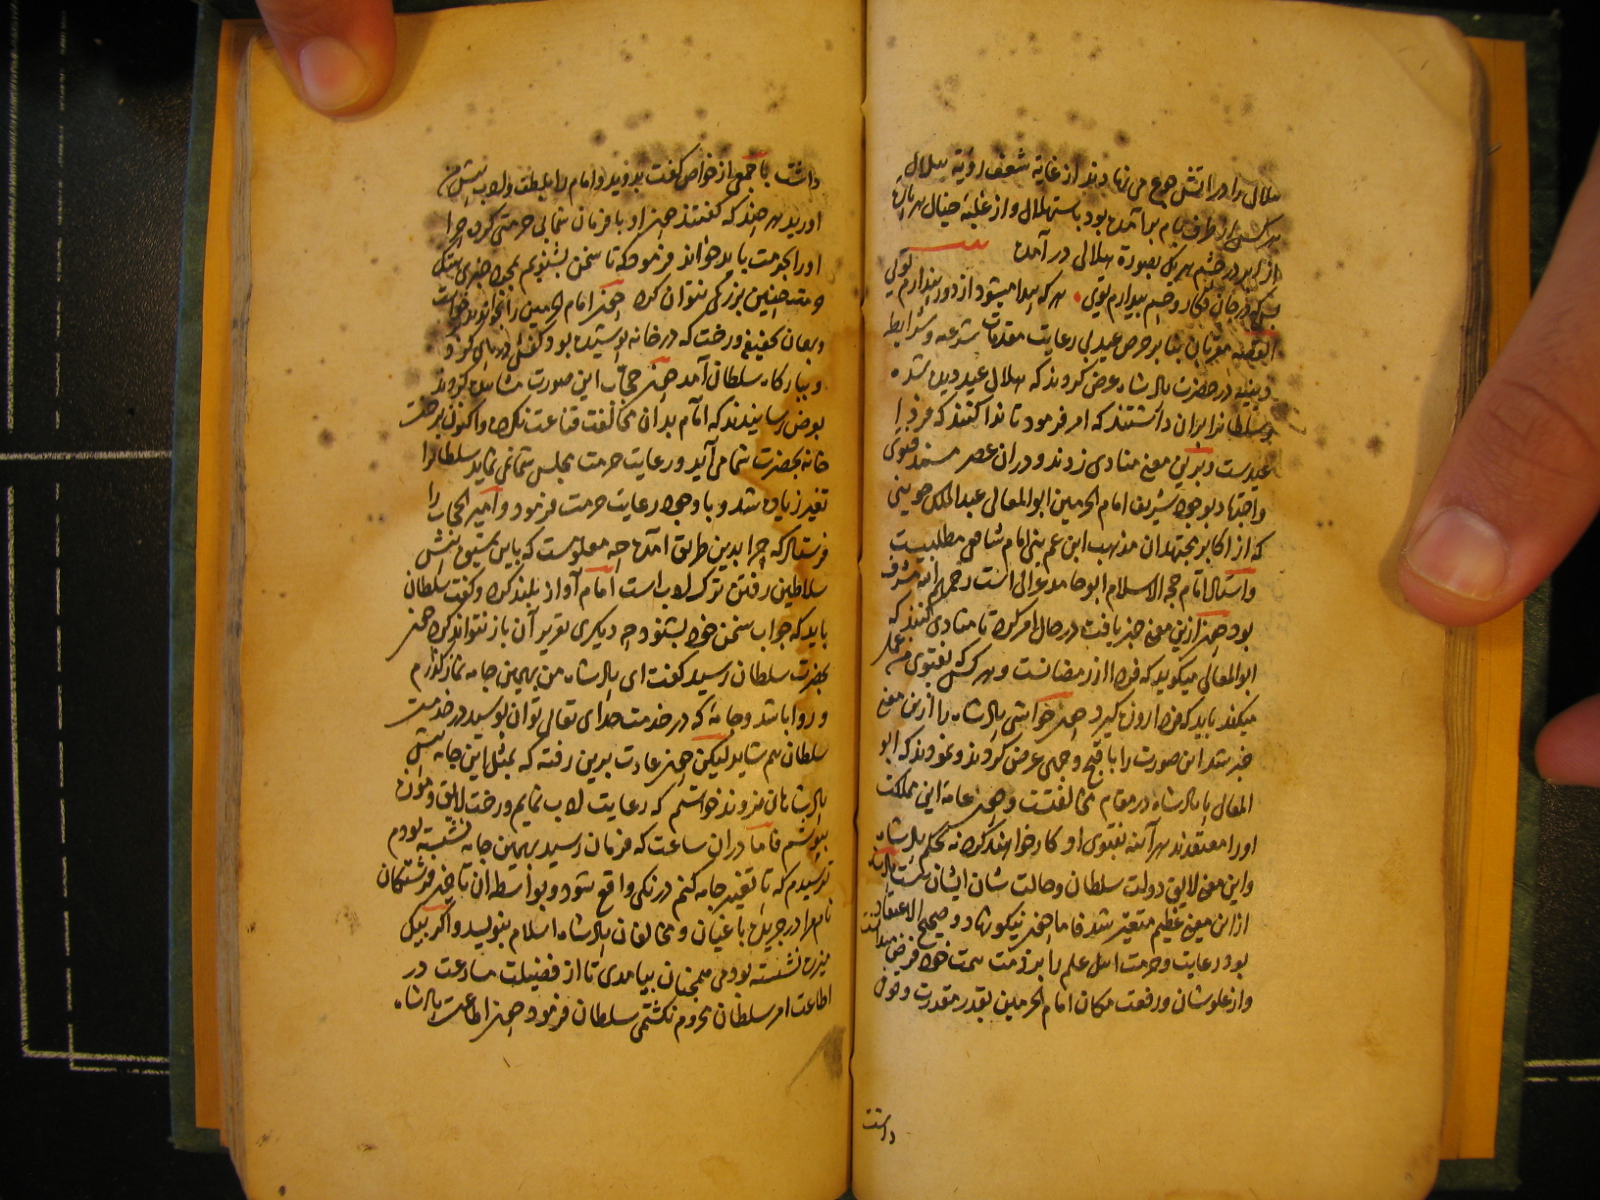 هلال را در آتش جوع می نهادند از غایة شعف رؤیة هلال
هر کس از طرف بام برآمده بود باستهلال و از غلبة خیال هر
از ابرو در چشم هر یک بصورة هلالی در آمده بیت
در جان فکار و چشم بیدارم تویی هر که پیدا میشود از دور پندارم تویی
القصه مقربان بنا بر حرص عید بی رعایت مقدمات شرعیه و شرایط
دینیه در حضرت پادشاه عرض کردند که هلال عید دیده شد
و سلطان را بران داشتند که امر فرمود تا ندا کنند که فردا
عیدست و برین معنی منادی زدند و دران عصر مسند فتوی
و اجتهاد بوجود شریف امام الحرمین ابو المعالی عبد الملک جوینی
که از اکابر مجتهدان مذهب ابن عم نبی امام شافعی مطلبیست
و استاد امام حجة الاسلام ابو حامد غزالی است رحمهم الله مشرف
بود چون ازین معنی خبر یافت در حال امر کرد تا منادی کنند که
ابو المعالی میگوید که فردا از رمضانست و هر کس که بفتوی من عمل
میکند باید که فردا روزه گیرد چون خواشی پادشاه را ازین معنی
خبر شد این صورت را باقبح وجهی عرض کردند و نمودند که ابو
المعالی با پادشاه در مقام مخالفتست و چون عامه این مملکت
او را معتقدند هر آینه بفتوی او کار خواهند کرد نه بحکم پادشاه
و این معنی لایق دولت سلطان و حالت شان ایشان نیست پادشاه
از این معنی عظیم متغیر شد فاما چون نیکو نهاد و صحیح الاعتقاد
بود رعایت و حرمت اهل علم را بر ذمت همت خود فرض میدانست
و از علو شان و رفعت مکان امام الحرمین بقدر مقدرت وقوف
داشت
داشت با جمعی از خواص گفت بروید و امام را بلطف و ادب پیش من
آورید هر چند که گفتند چون او با فرمان شما بی حرمتی کرد چرا
او را بحرمت باید خواند فرمود که تا سخن بشنویم بمجرد خبری هتک
حرمت چنین بزرگی نتوان کرد چون امام الحرمین را بخواندند برخاست
و همان تخفیفه و رخت که در خانه پوشیده بود کفش در پای کرد
و ببارگاه سلطان آمد چون حجاب این صورت مشاهده کردند
بعرض رسانیدند که امام بدان مخالفت قناعت نکرد و اکنون برخت
خانه بحضرت شما می آید و رعایت حرمت مجلس شما نمی نماید سلطان را
تغیر زیاده شد و با وجود رعایت حرمت فرمود و امیر الحجاب را
فرستاد که چرا بدین طریق آمده چه معلومست که باین هیئت پیش
سلاطین رفتن ترک ادب است امام آواز بلند کرد و گفت سلطان
باید که جواب سخن خود بشنود چه دیگری تقریر آن باز نتواند کرد چون
بحضرت سلطان رسید گفت ای پادشاه من بهمین جامه نماز گذارم
و روا باشد و جامه که در خدمت خدای تعالی توان پوشید در خدمت
سلطان هم شاید لیکن چون عادت برین رفته که بمثل این جامه پیش
پادشاهان نروند خواستم که رعایت ادب نمایم و رخت لایق و موزه
بپوشم فاما دران ساعت که فرمان رسید بهمین جامه نشسته بودم
ترسیدم که تا تغییر جامه کنم درنگی واقع شود و بواسطه آن تأخیر فرشتگان
نام مرا در جریده باغیان و مخالفان پادشاه اسلام بنویسند و اگر
نشسته بودمی همچنان بیامدی تا از فضیلت مسارعت در
اطاعت امر سلطان محروم نگشتمی سلطان فرمود چون اطاعت پادشاه